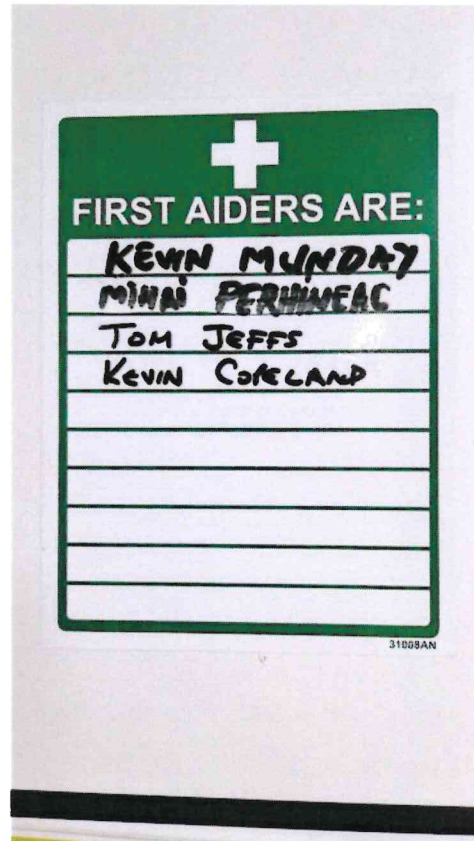 FIRST AIDERS ARE:
KEVIN MUNDAY
MIHAI PERHINEAC
TOM JEFFS
KEVIN COPELAND